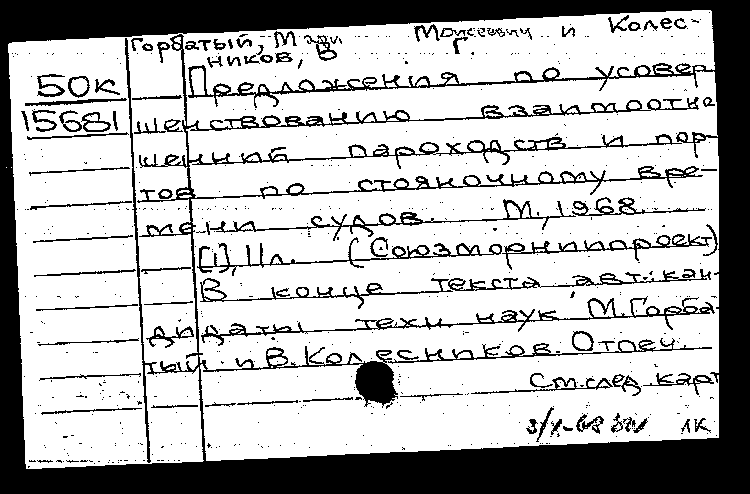 Горбатый, Марк Моисеевич и Колес-
ников, В Г.
50к
15681
Предложения по усовер
шенствованию взаимоотно
шений пароходств и пор-
тов по стояночному вре-
мени судов. М., 1968.
[1], 11л. (Союзморниипроект)
В конце текста авт.: кан-
дидаты техн. наук М. Горба-
тый и В. Колесников. Отпеч.
См. след. карт
1К